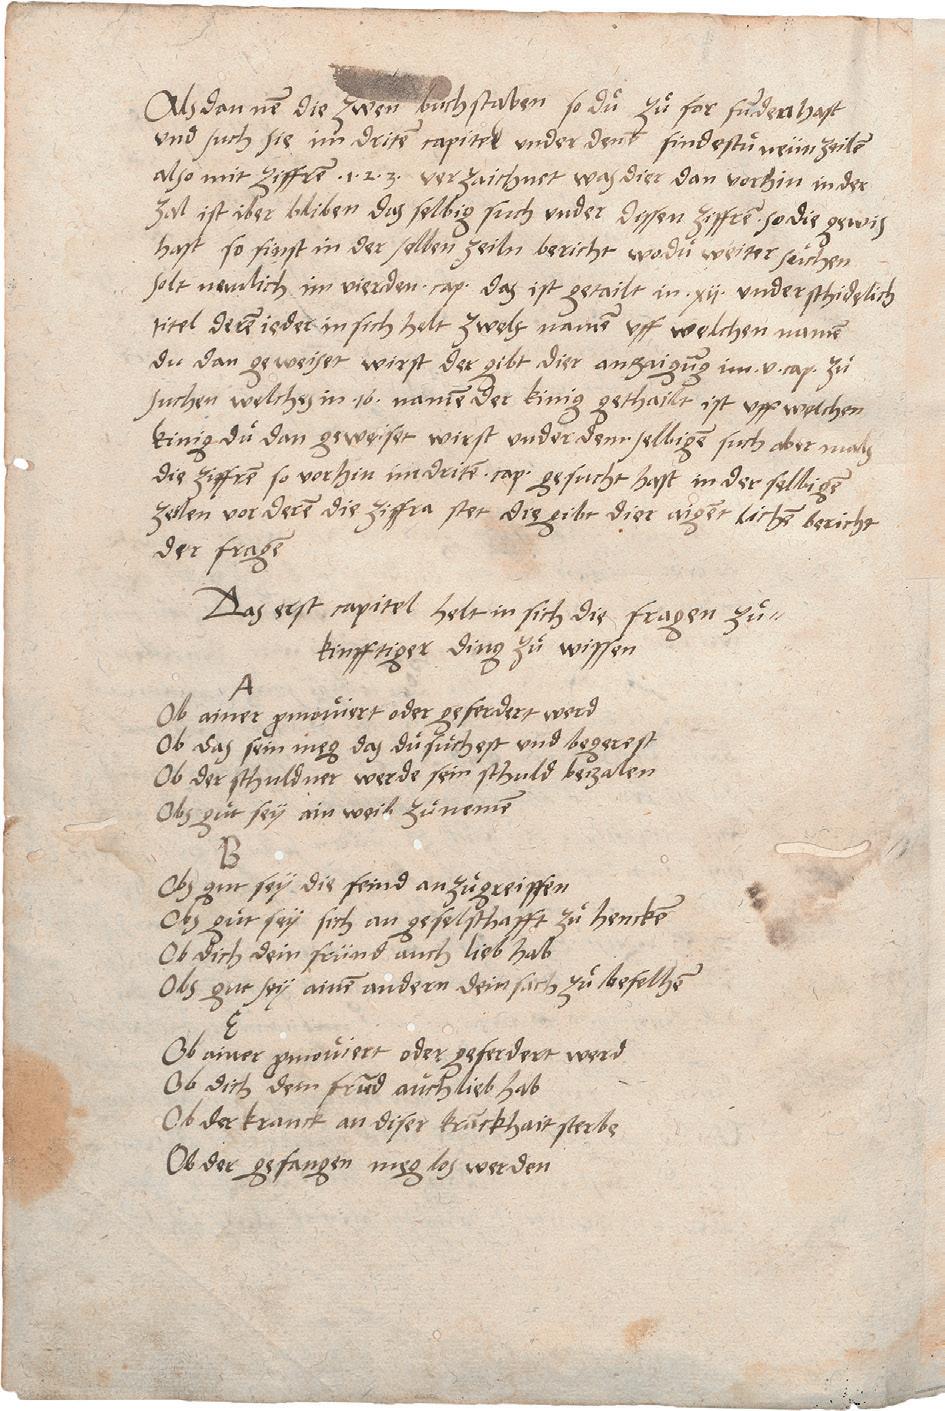 Als dan nē die zwen buchstaben so dů zů for funden hast
und such sie im dritē capitel under denē findestu neün zeilē
also mit ziffrē .1.2.3. verzaichnet was dier dan vorhin in der
zal ist iber bliben das selbig such under dissen ziffrē. so die gewis
hast so finst in der selben zeiln bericht wo dů weiter sůchen
solt nemlich im vierden. cap. das ist getailt in .xij. underschidelich
titel derē ieder in sich helt zwelf namē uff welchen namē
du dan geweiset wirst der gibt dier anzaigūg im .v. cap. zů
suchen welches in .16. namē der kinig gethailt ist uff welchen
kinig dů dan geweiset wirst under dem selbigē such aber mals
die ziffrē so vorhin im dritē. cap. gesucht hast in der selbigē
zeilen vor derē die ziffra stet die gibt dier aigēt lichē bericht
der fragē
Das erst capitel helt in sich die fragen zů-
kinfftiger ding zů wissen
A
Ob ainer pmoviert oder gefordert werd
Ob das sein meg das du suchest und begerest
Ob der schuldner werde sein schuld bezalen
Obs gůt sey ain weib zů nemē
B
Obs gut sey die feind anzůgreiffen
Obs gůt sey sich an geselschafft zů henckē
Ob dich dein fründ auch lieb hab
Obs gut sey ainē andern dein sach zů befelhē
C
Ob ainer pmoviert oder gefordert werd
Ob dich dein frůd auch lieb hab
Ob der kranck an diser krāckhait sterbe
Ob der gefangen meg los werden